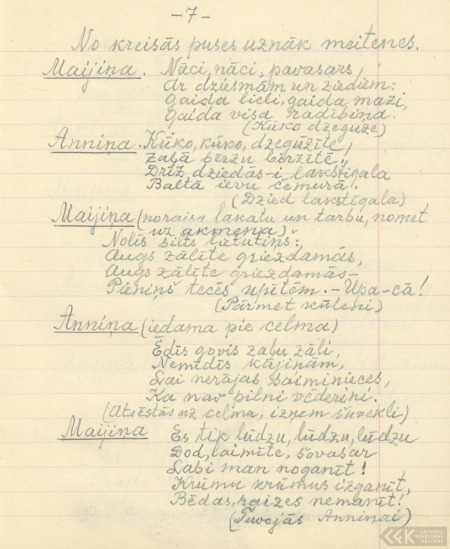 -7-
No kreisās puses uznāk meitenes.
Maijiņa. Nāci, nāci, pavasars,
Ar dziesmām un ziediem:
Gaida lieli, gaida mazi,
Gaida visa radībiņa.
(Kūko dzeguze)
Anniņa. Kūko, kūko, dzegūzīte,
Zaļā birzu birzītē,
Drīz dziedās-i lakstīgala
Baltā ievu čemurā!
(Dzied lakstīgala)
Maijiņa (noraisa lakatu un tarbu, nomet
uz akmeņa)
Nolīs silts lietutiņš:
Augs zālīte griezdamās,
Augs zālīte griezdamās-
Pieniņš tecēs upītēm. - Upa-cā!
(Pārmet kūleni)
Anniņa (iedama pie celma)
Ēdīs govis zaļu zāli,
Nemīdīs kājiņām,
Lai nerājas saiminieces,
Ka nav pilni vēderiņi.
(Atsēstās uz celma, izņem svārkli)
Maijiņa Es tik lūdzu, lūdzu, lūdzu
Dod, laimīte, šovasar
Labi man noganīt!
Krūmu krūmus izganīt,
Bēdas, raizes nemanīt!
(Tuvojās Anniņai)
LFK
LATVIEŠU
FOLKLORAS
KRĀTUVE